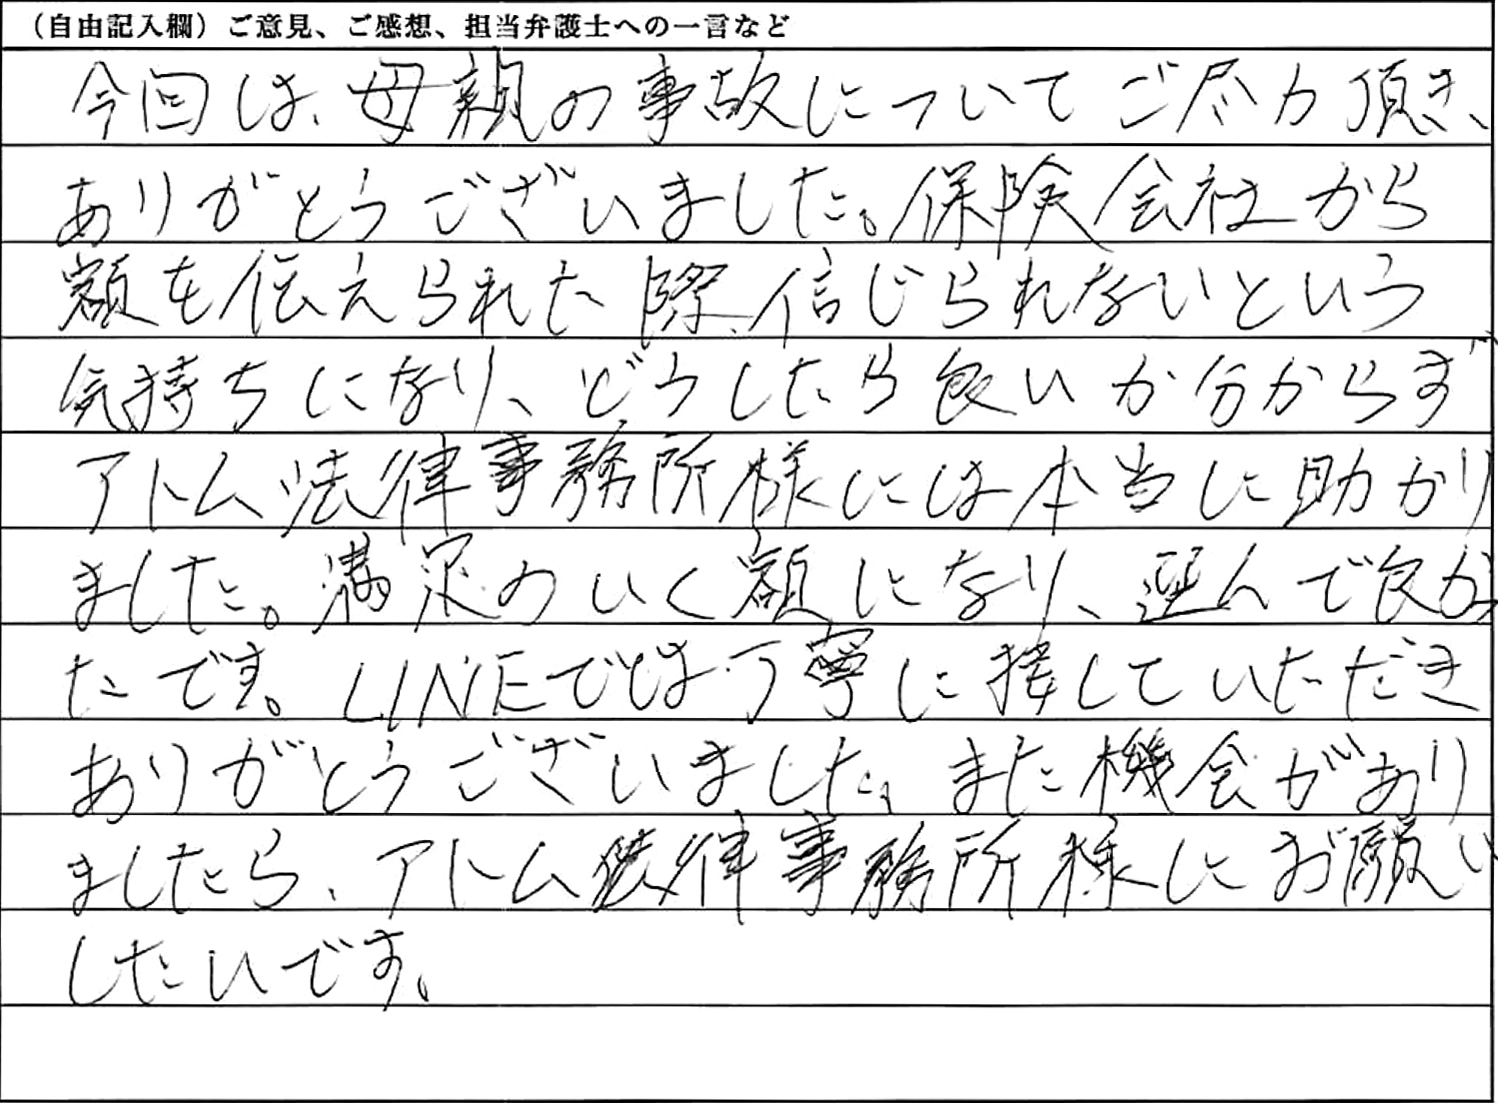 （自由記入欄）ご意見、ご感想、担当弁護士への一言など
今回は、母親の事故についてご尽力頂き、
ありがとうございました。保険会社から
額を伝えられた際、信じられないという
気持ちになり、どうしたら良いか分からず
アトム法律事務所様には本当に助かり
ました。満足のいく額になり、選んで良かっ
たです。LINEでは丁寧に接していただき
ありがとうございました。また機会があり
ましたら、アトム法律事務所様にお願い
したいです。